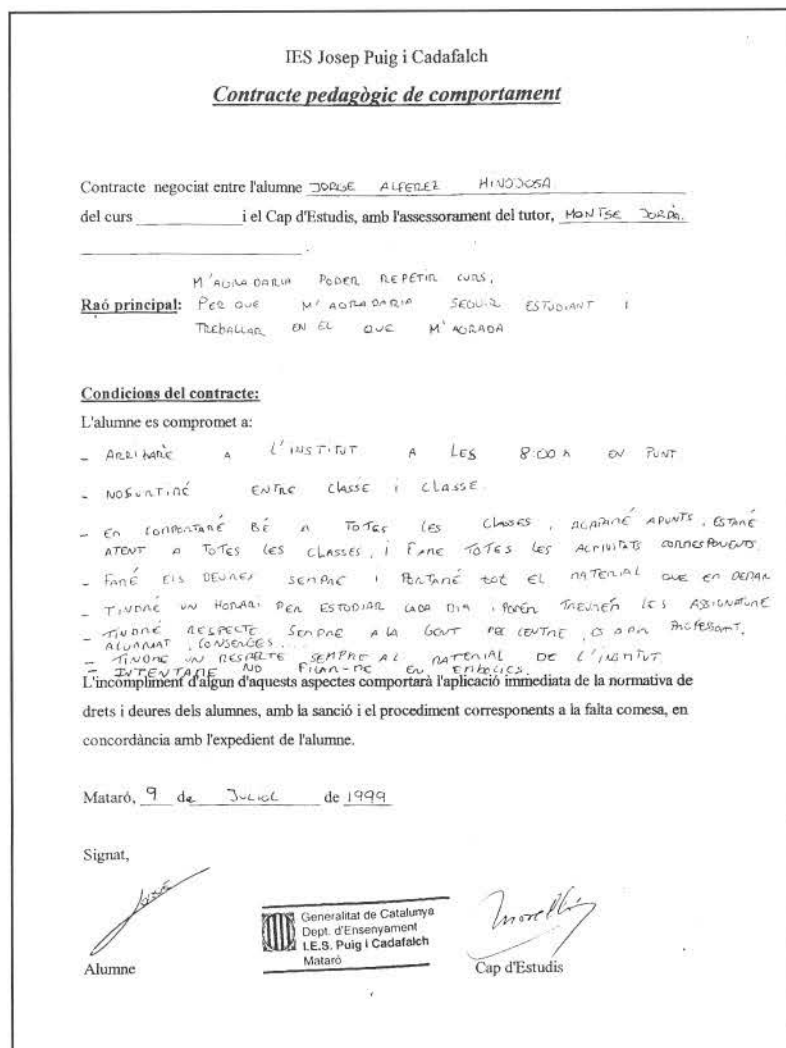 IES Josep Puig i Cadafalch
Contracte pedagògic de comportament
Contracte negociat entre l'alumne JORGE ALFEREZ HINOJOSA
del curs i el Cap d'Estudis, amb l'assessorament del tutor, MONTSE JORDÀ.
M'AGRADARIA PODER REPETIR CURS,
Raó principal: PER QUE M'AGRADARIA SEGUIR ESTUDIANT I
TREBALLAR EN EL QUE M'AGRADA
Condicions del contracte:
L'alumne es compromet a:
- ARRIBARÉ A L'INSTITUT A LES 8:00 h EN PUNT
- NO SURTIRÉ ENTRE CLASSE I CLASSE.
- EM COMPORTARÉ BÉ A TOTES LES CLASSES, AGAFARÉ APUNTS, ESTARÉ
ATENT A TOTES LES CLASSES, I FARE TOTES LES ACTIVITATS CORRESPONENTS.
- FARÉ ELS DEURES SEMPRE I PORTARÉ TOT EL MATERIAL QUE EM
- TINDRÉ UN HORARI PER ESTUDIAR CADA DIA I LES ASSIGNATURE
- TINDRÉ RESPECTE SEMPRE A LA GENT CENTRE, PROFESSORAT,
ALUMNAT, CONSERGES...
- TINDRE UN RESPECTE SEMPRE AL MATERIAL DE L'INSTITUT
- INTENTARE NO FICAR-ME EN EMBOLICS.
L'incompliment d'algun d'aquests aspectes comportarà l'aplicació immediata de la normativa de
drets i deures dels alumnes, amb la sanció i el procediment corresponents a la falta comesa, en
concordància amb l'expedient de l'alumne.
Mataró, 9 de JULIOL de 1999
Signat,
Generalitat de Catalunya
Dept. d'Ensenyament
I.E.S. Puig i Cadafalch
Mataró
Alumne Cap d'Estudis